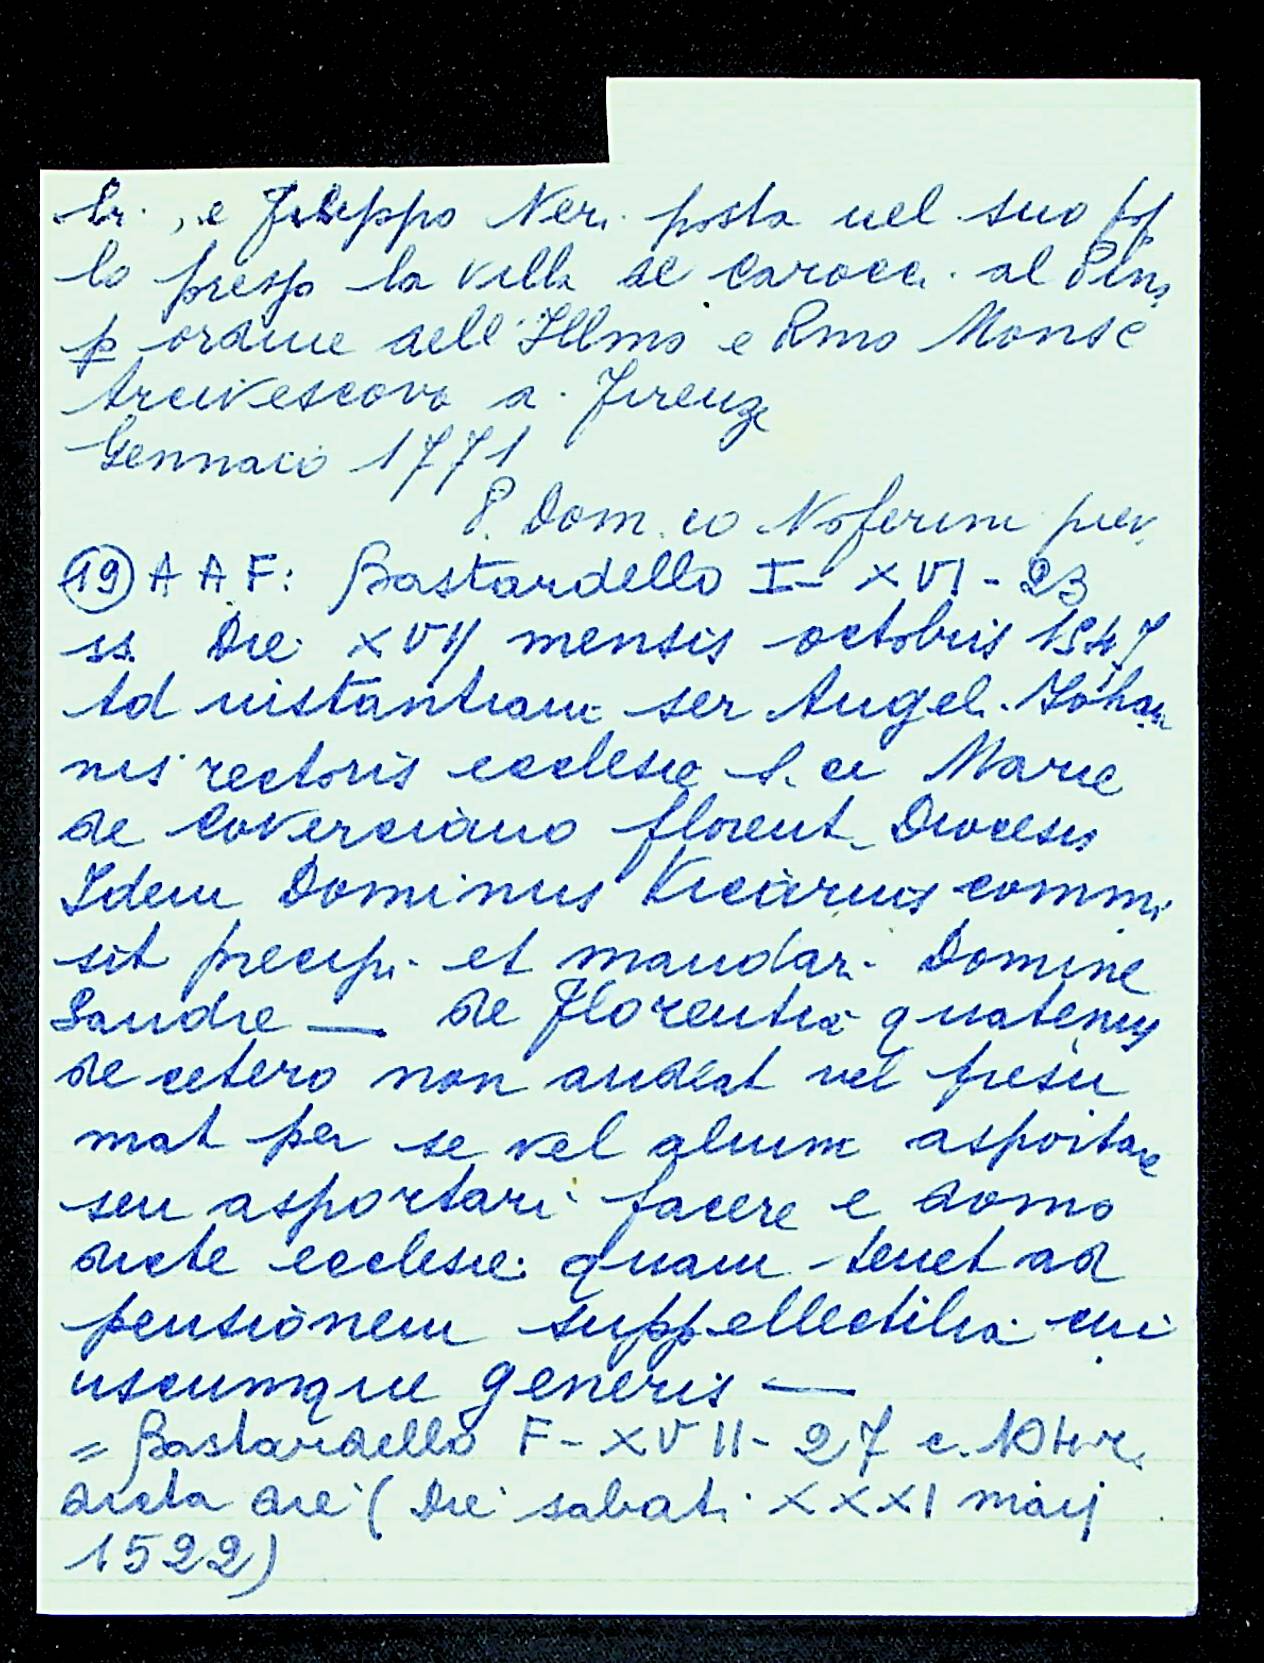 br., e Filippo Neri posta nel suo pop
lo presso la villa de Carocci al Pino
p ordine dell'Illmo e Rmo Monse
Arcivescovo di Firenze
Gennaio 1771
P. Dom.co Noferini piev.
(19) A A F: Bastardello I - XVI - 23
ss. Die XVIJ mensis octobris 1547
Ad instantiam ser Angeli Johan
nis rectoris ecclesie S.ce Marie
de Coverciano florent. Diocesis
Idem Dominus Vicarius commi
sit precipi et mandari Domine
Sandre — de Florentia quatenus
de cetero non audeat vel presu
mat per se vel alium asportare
seu asportari facere e domo
dicte ecclesie quam tenet ad
pensionem suppellectilia cui
uscumque generis —
= Bastardello F - XVII - 27 c.
dicta die (Die sabati XXXI maij
1522)